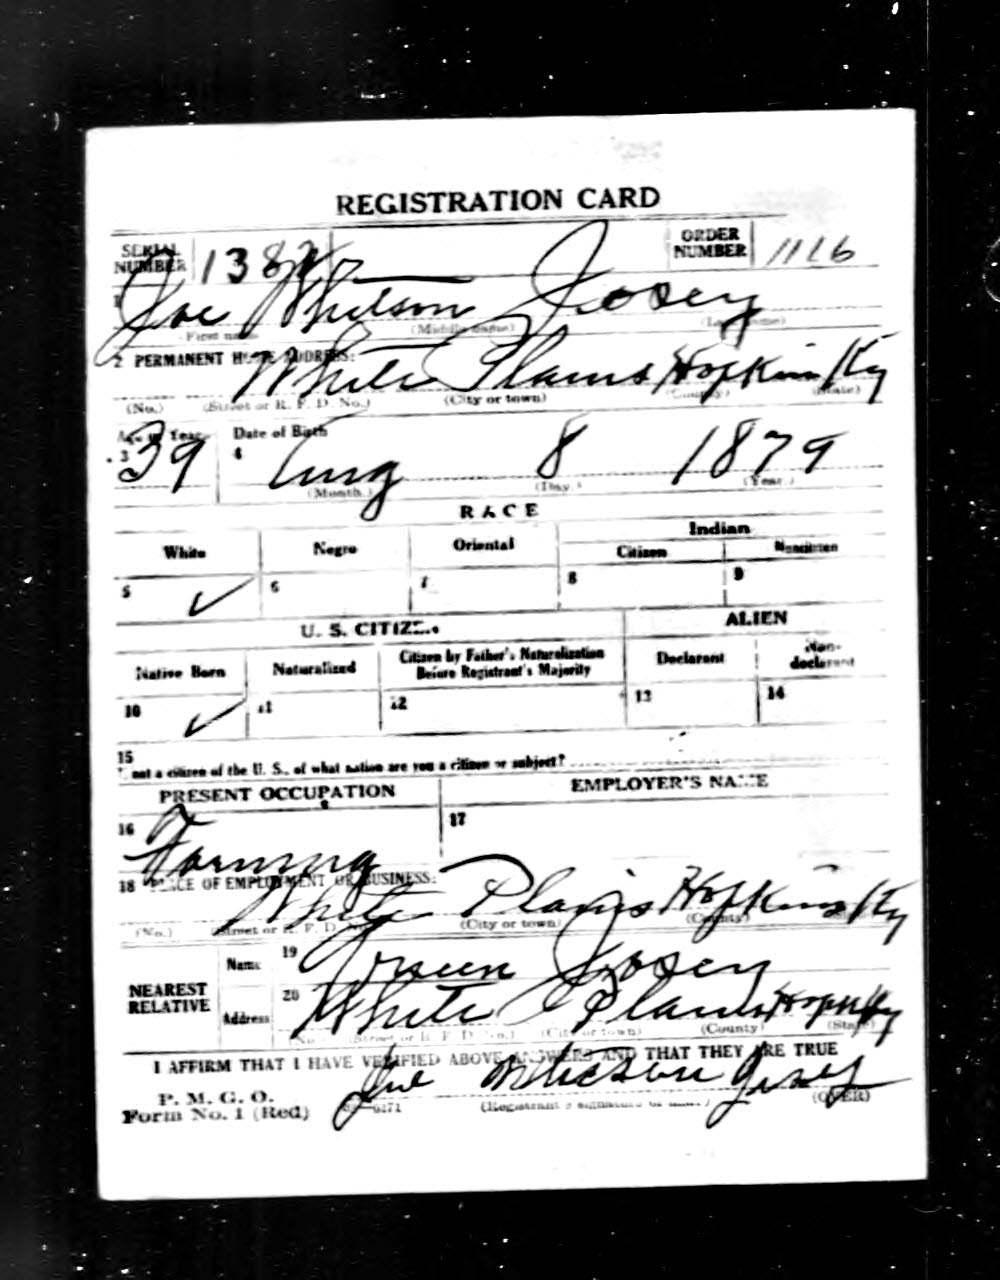 REGISTRATION CARD
SERIAL NUMBER 138
ORDER NUMBER 1116
1 Joe Whitson Josey
(First name) (Middle name) (Last name)
2 PERMANENT HOME ADDRESS:
White Plains Hopkins Ky
(No.) (Street or R. F. D. No.) (City or town) (County) (State)
Age in Years Date of Birth
3 39 4 Aug 8 1879
(Month.) (Day.) (Year.)
RACE
White Negro Oriental Indian
Citizen Noncitizen
5 ✓ 6 7 8 9
U. S. CITIZEN ALIEN
Native Born Naturalized Citizen by Father's Naturalization Before Registrant's Majority Declarant Non-declarant
10 ✓ 11 12 13 14
15
If not a citizen of the U. S., of what nation are you a citizen or subject?
PRESENT OCCUPATION EMPLOYER'S NAME
16 Farming 17
18 PLACE OF EMPLOYMENT OR BUSINESS:
White Plains Hopkins Ky
(No.) (Street or R. F. D. No.) (City or town) (County)
NEAREST RELATIVE
Name 19 Josey
Address 20 White Plains Hopk Ky
(No.) (Street or R. F. D. No.) (City or town) (County) (State)
I AFFIRM THAT I HAVE VERIFIED ABOVE ANSWERS AND THAT THEY ARE TRUE
P. M. G. O.
Form No. 1 (Red)
Joe Whitson Josey
(Registrant's signature or mark.) (OVER)